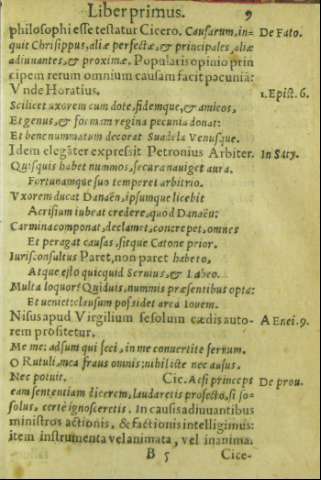 Liber primus. 9
philosophi esse testatur Cicero. Causarum, in- De Fato.
quit Chrisippus, aliæ perfectæ, & principales, aliæ
adiuuantes, & proximæ. Popularis opinio prin
cipem rerum omnium causam facit pacuniã:
Vnde Horatius. 1. Epist. 6.
Scilicet uxorem cum dote, fidemque, & amicos,
Et genus, & formam regina pecunia donat:
Et bene nummatum decorat Suadela Venusque.
Idem elegãter expressit Petronius Arbiter. In Saty.
Quisquis habet nummos, secura nauiget aura.
Fortunamque suo temperet arbitrio.
Vxorem ducat Danaën, ipsumque licebit
Acrisium iubeat credere, quod Danaën:
Carmina componat, declamet, concrepet, omnes
Et peragat causas, sitque Catone prior.
Iurisconsultus Paret, non paret habeto,
Atque esto quicquid Seruius, & Labeo.
Multa loquor? Quiduis, nummis præsentibus opta:
Et ueniet: clausum possidet arca Iouem.
Nisus apud Virgilium se solum cædis auto- A Enei. 9.
rem profitetur.
Me me: adsum qui feci, in me conuertite ferrum.
O Rutuli, mea fraus omnis: nihil iste nec ausus,
Nec potuit. Cic. Ac si princeps De prou.
eam sententiam dicerem, laudaretis profecto, si so-
solus, certè ignosceretis. In causis adiuuantibus
ministros actionis, & factionis intelligimus:
item instrumenta vel animata, vel inanima:
B 5 Cice-